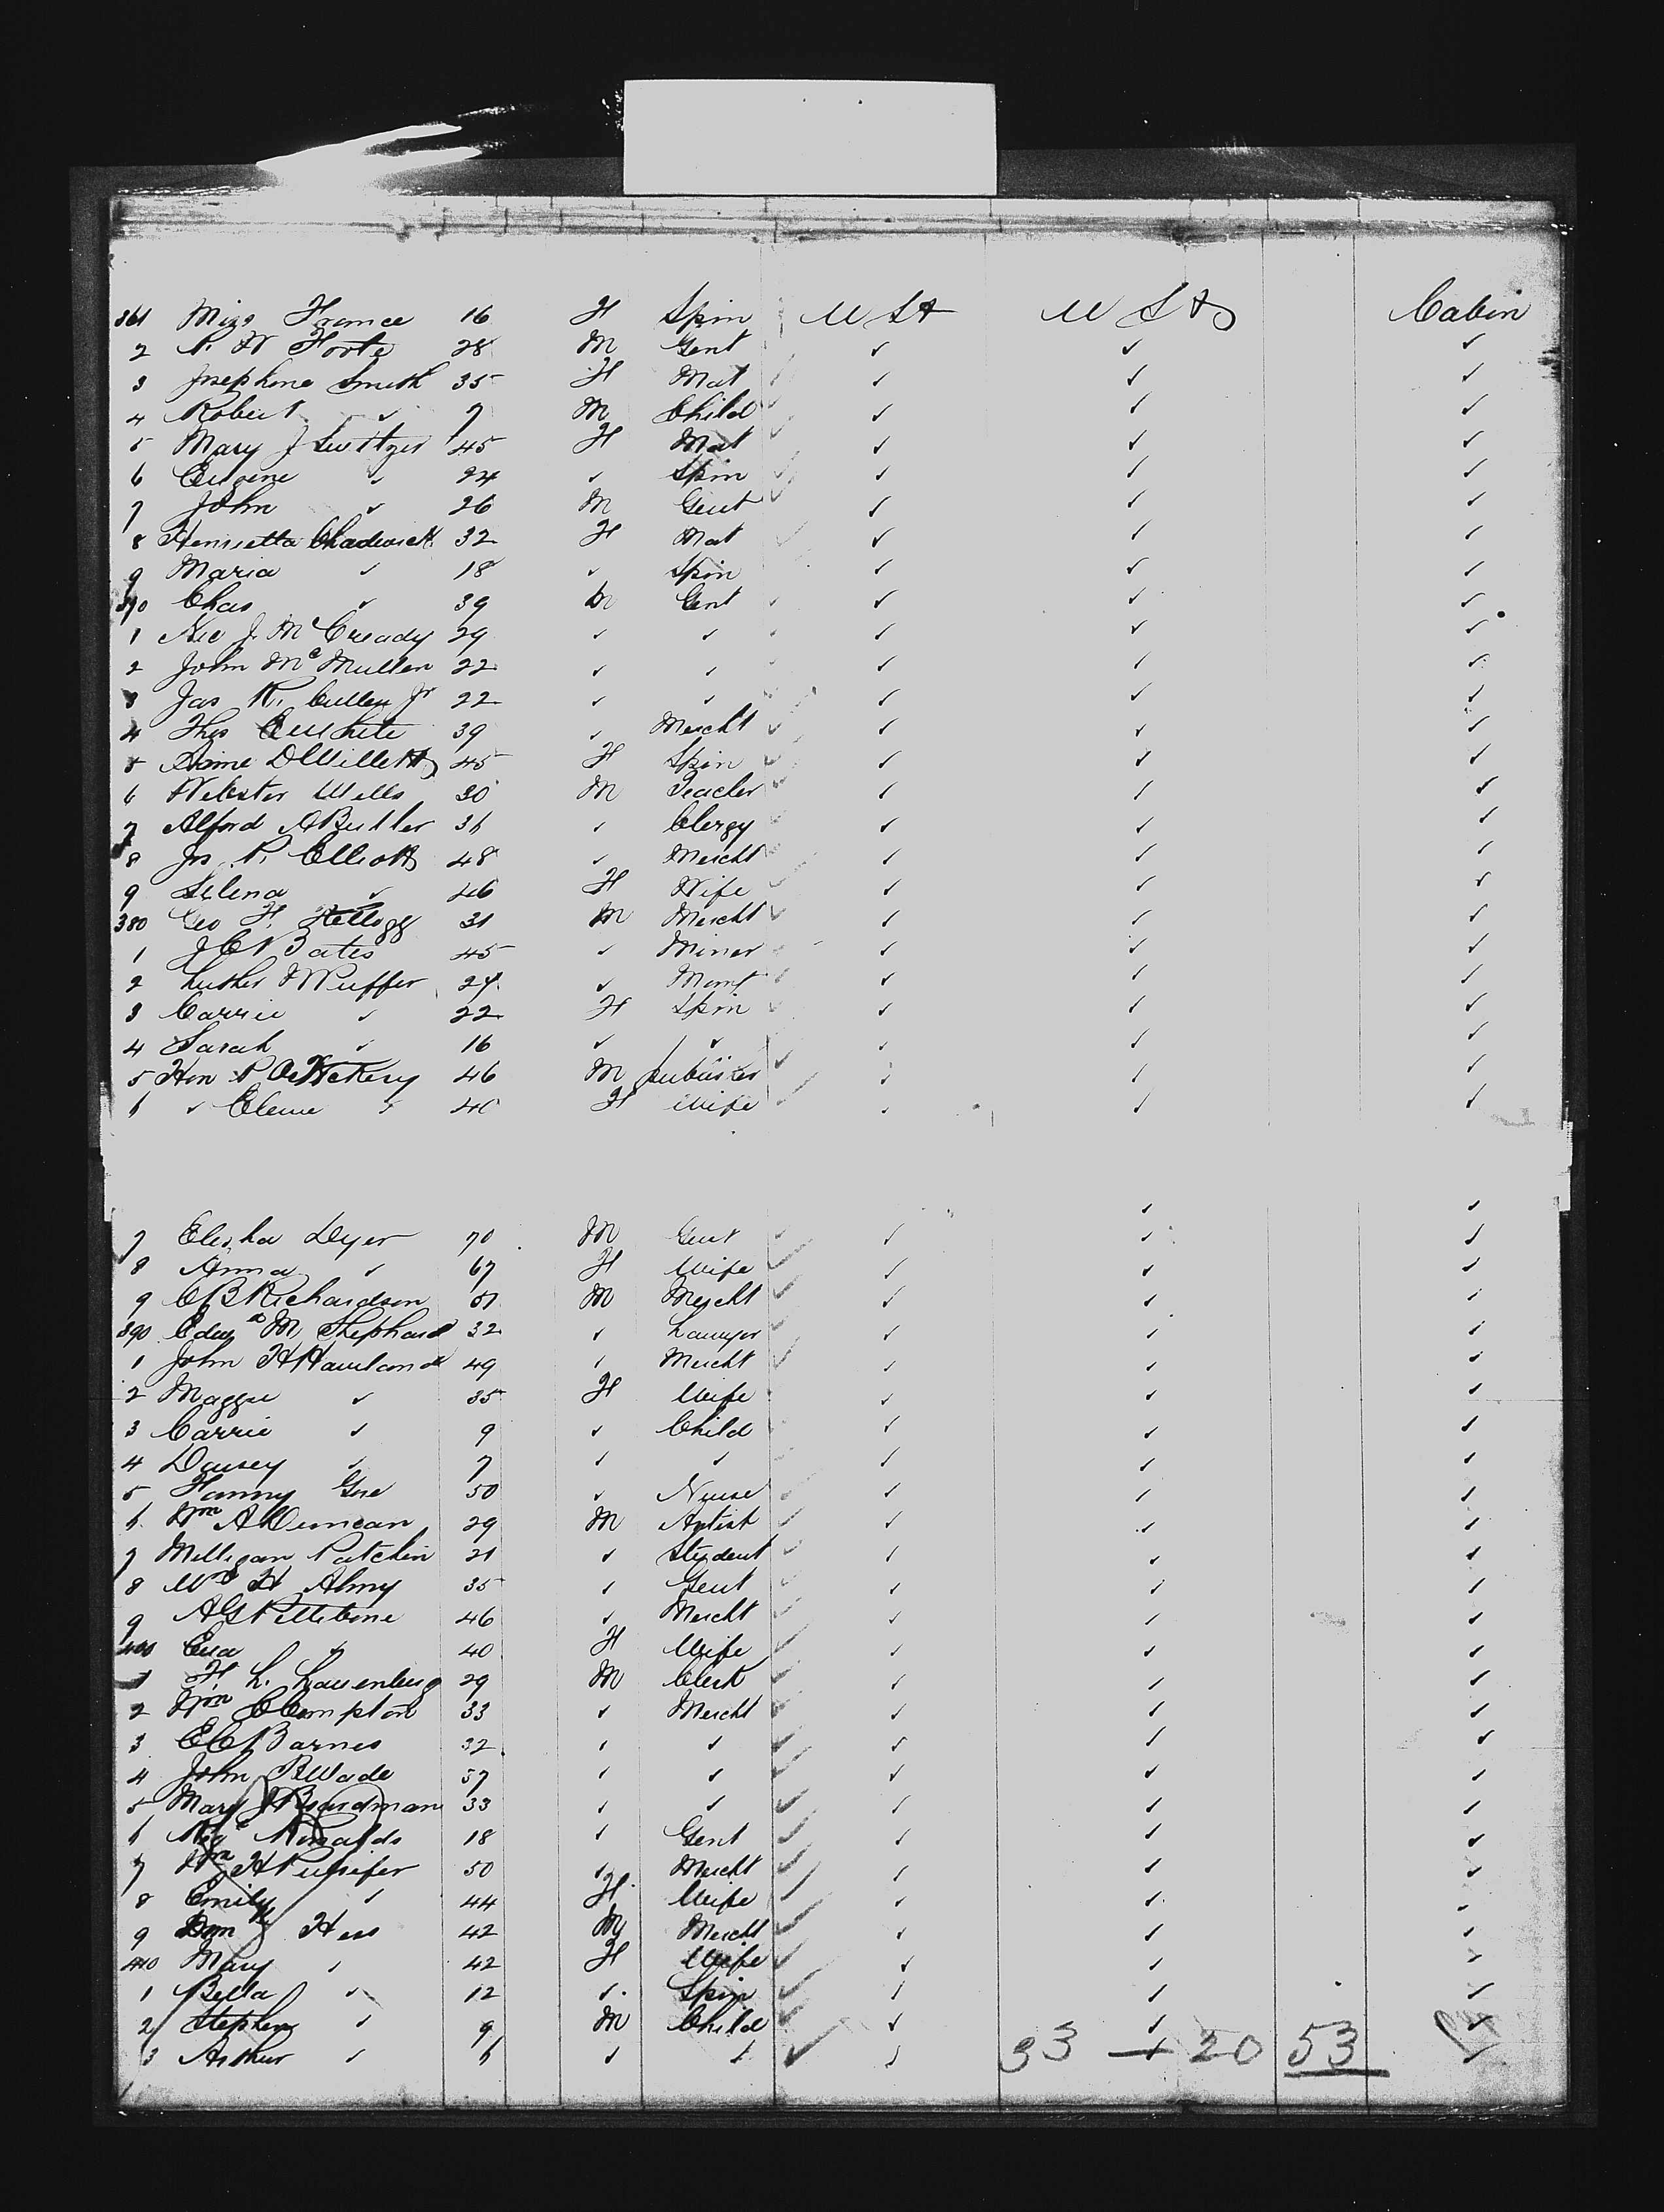 361 Miss France 16 F Spin U St U Sts Cabin
2 R. W Foote 28 M Gent ✓ ✓ ✓
3 Josephine Smith 35 F Mat ✓ ✓ ✓
4 Robert ✓ 7 M Child ✓ ✓ ✓
5 Mary J Switzer 45 F Mat ✓ ✓ ✓
6 Eugene ✓ 24 ✓ Spin ✓ ✓ ✓
7 John ✓ 26 M Gent ✓ ✓ ✓
8 Henrietta Chadwick 32 F Mat ✓ ✓ ✓
9 Maria ✓ 18 ✓ Spin ✓ ✓ ✓
370 Chas ✓ 39 M Gent ✓ ✓ ✓
1 J. McCready 29 ✓ ✓ ✓ ✓ ✓
2 John McMullen 22 ✓ ✓ ✓ ✓ ✓
3 Jas R. Cullen Jr 22 ✓ ✓ ✓ ✓ ✓
4 Thos E White 39 ✓ Mercht ✓ ✓ ✓
5 D Willetts 45 F Spin ✓ ✓ ✓
6 Webster Wells 30 M Teacher ✓ ✓ ✓
7 Alford A Butler 36 ✓ Clergy ✓ ✓ ✓
8 Jos. P. Elliott 48 ✓ Mercht ✓ ✓ ✓
9 Selena ✓ 46 F Wife ✓ ✓ ✓
380 Geo F. Kellogg 31 M Mercht ✓ ✓ ✓
1 J C Bates 45 ✓ Miner ✓ ✓ ✓
2 Luther W Puffer 24 ✓ Manf ✓ ✓ ✓
3 Carrie ✓ 22 F Spin ✓ ✓ ✓
4 Sarah ✓ 16 ✓ ✓ ✓ ✓ ✓
5 Hon P O 46 M ✓ ✓ ✓
6 ✓ ✓ 40 F Wife ✓ ✓ ✓
7 Elisha Dyer 70 M Gent ✓ ✓ ✓
8 Anna ✓ 67 F Wife ✓ ✓ ✓
9 C B Richardson 51 M Mercht ✓ ✓ ✓
390 Edwd M Shephard 32 ✓ Lawyer ✓ ✓ ✓
1 John H Haviland 49 ✓ Mercht ✓ ✓ ✓
2 Maggie ✓ 35 F Wife ✓ ✓ ✓
3 Carrie ✓ 9 ✓ Child ✓ ✓ ✓
4 Daisey ✓ 7 ✓ ✓ ✓ ✓ ✓
5 Fanny 50 ✓ Nurse ✓ ✓ ✓
6 Wm A Duncan 29 M Artist ✓ ✓ ✓
7 Milligan Patchin 21 ✓ Student ✓ ✓ ✓
8 H Almy 35 ✓ Gent ✓ ✓ ✓
9 A G Pettibone 46 ✓ Mercht ✓ ✓ ✓
400 Eva ✓ 40 F Wife ✓ ✓ ✓
1 F. L. Lauenburg 29 M Clerk ✓ ✓ ✓
2 Wm C Compton 33 ✓ Mercht ✓ ✓ ✓
3 E C Barnes 32 ✓ ✓ ✓ ✓ ✓
4 John B Wade 57 ✓ ✓ ✓ ✓ ✓
5 Mary J Boardman 33 ✓ ✓ ✓ ✓ ✓
6 Ronalds 18 ✓ Gent ✓ ✓ ✓
7 Wm H Pulsifer 50 ✓ Mercht ✓ ✓ ✓
8 Emily ✓ 44 F Wife ✓ ✓ ✓
9 Hess 42 M Mercht ✓ ✓ ✓
410 Mary ✓ 42 F Wife ✓ ✓ ✓
1 Bella ✓ 12 ✓ Spin ✓ ✓ ✓
2 Stephen ✓ 9 M Child ✓ ✓ ✓
3 Arthur ✓ 6 ✓ ✓ ✓ 33 + 20 53 ✓